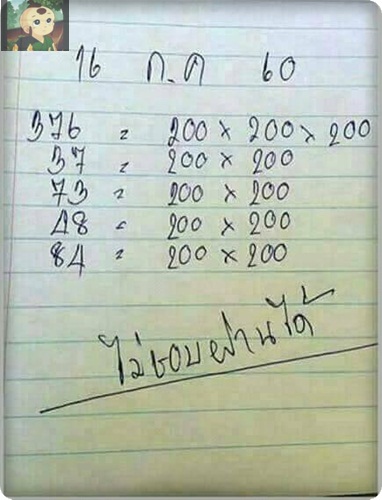 16 ก.ค 60
376 = 200 × 200 × 200
37 = 200 × 200
73 = 200 × 200
48 = 200 × 200
84 = 200 × 200
ไม่ชอบผ่านได้